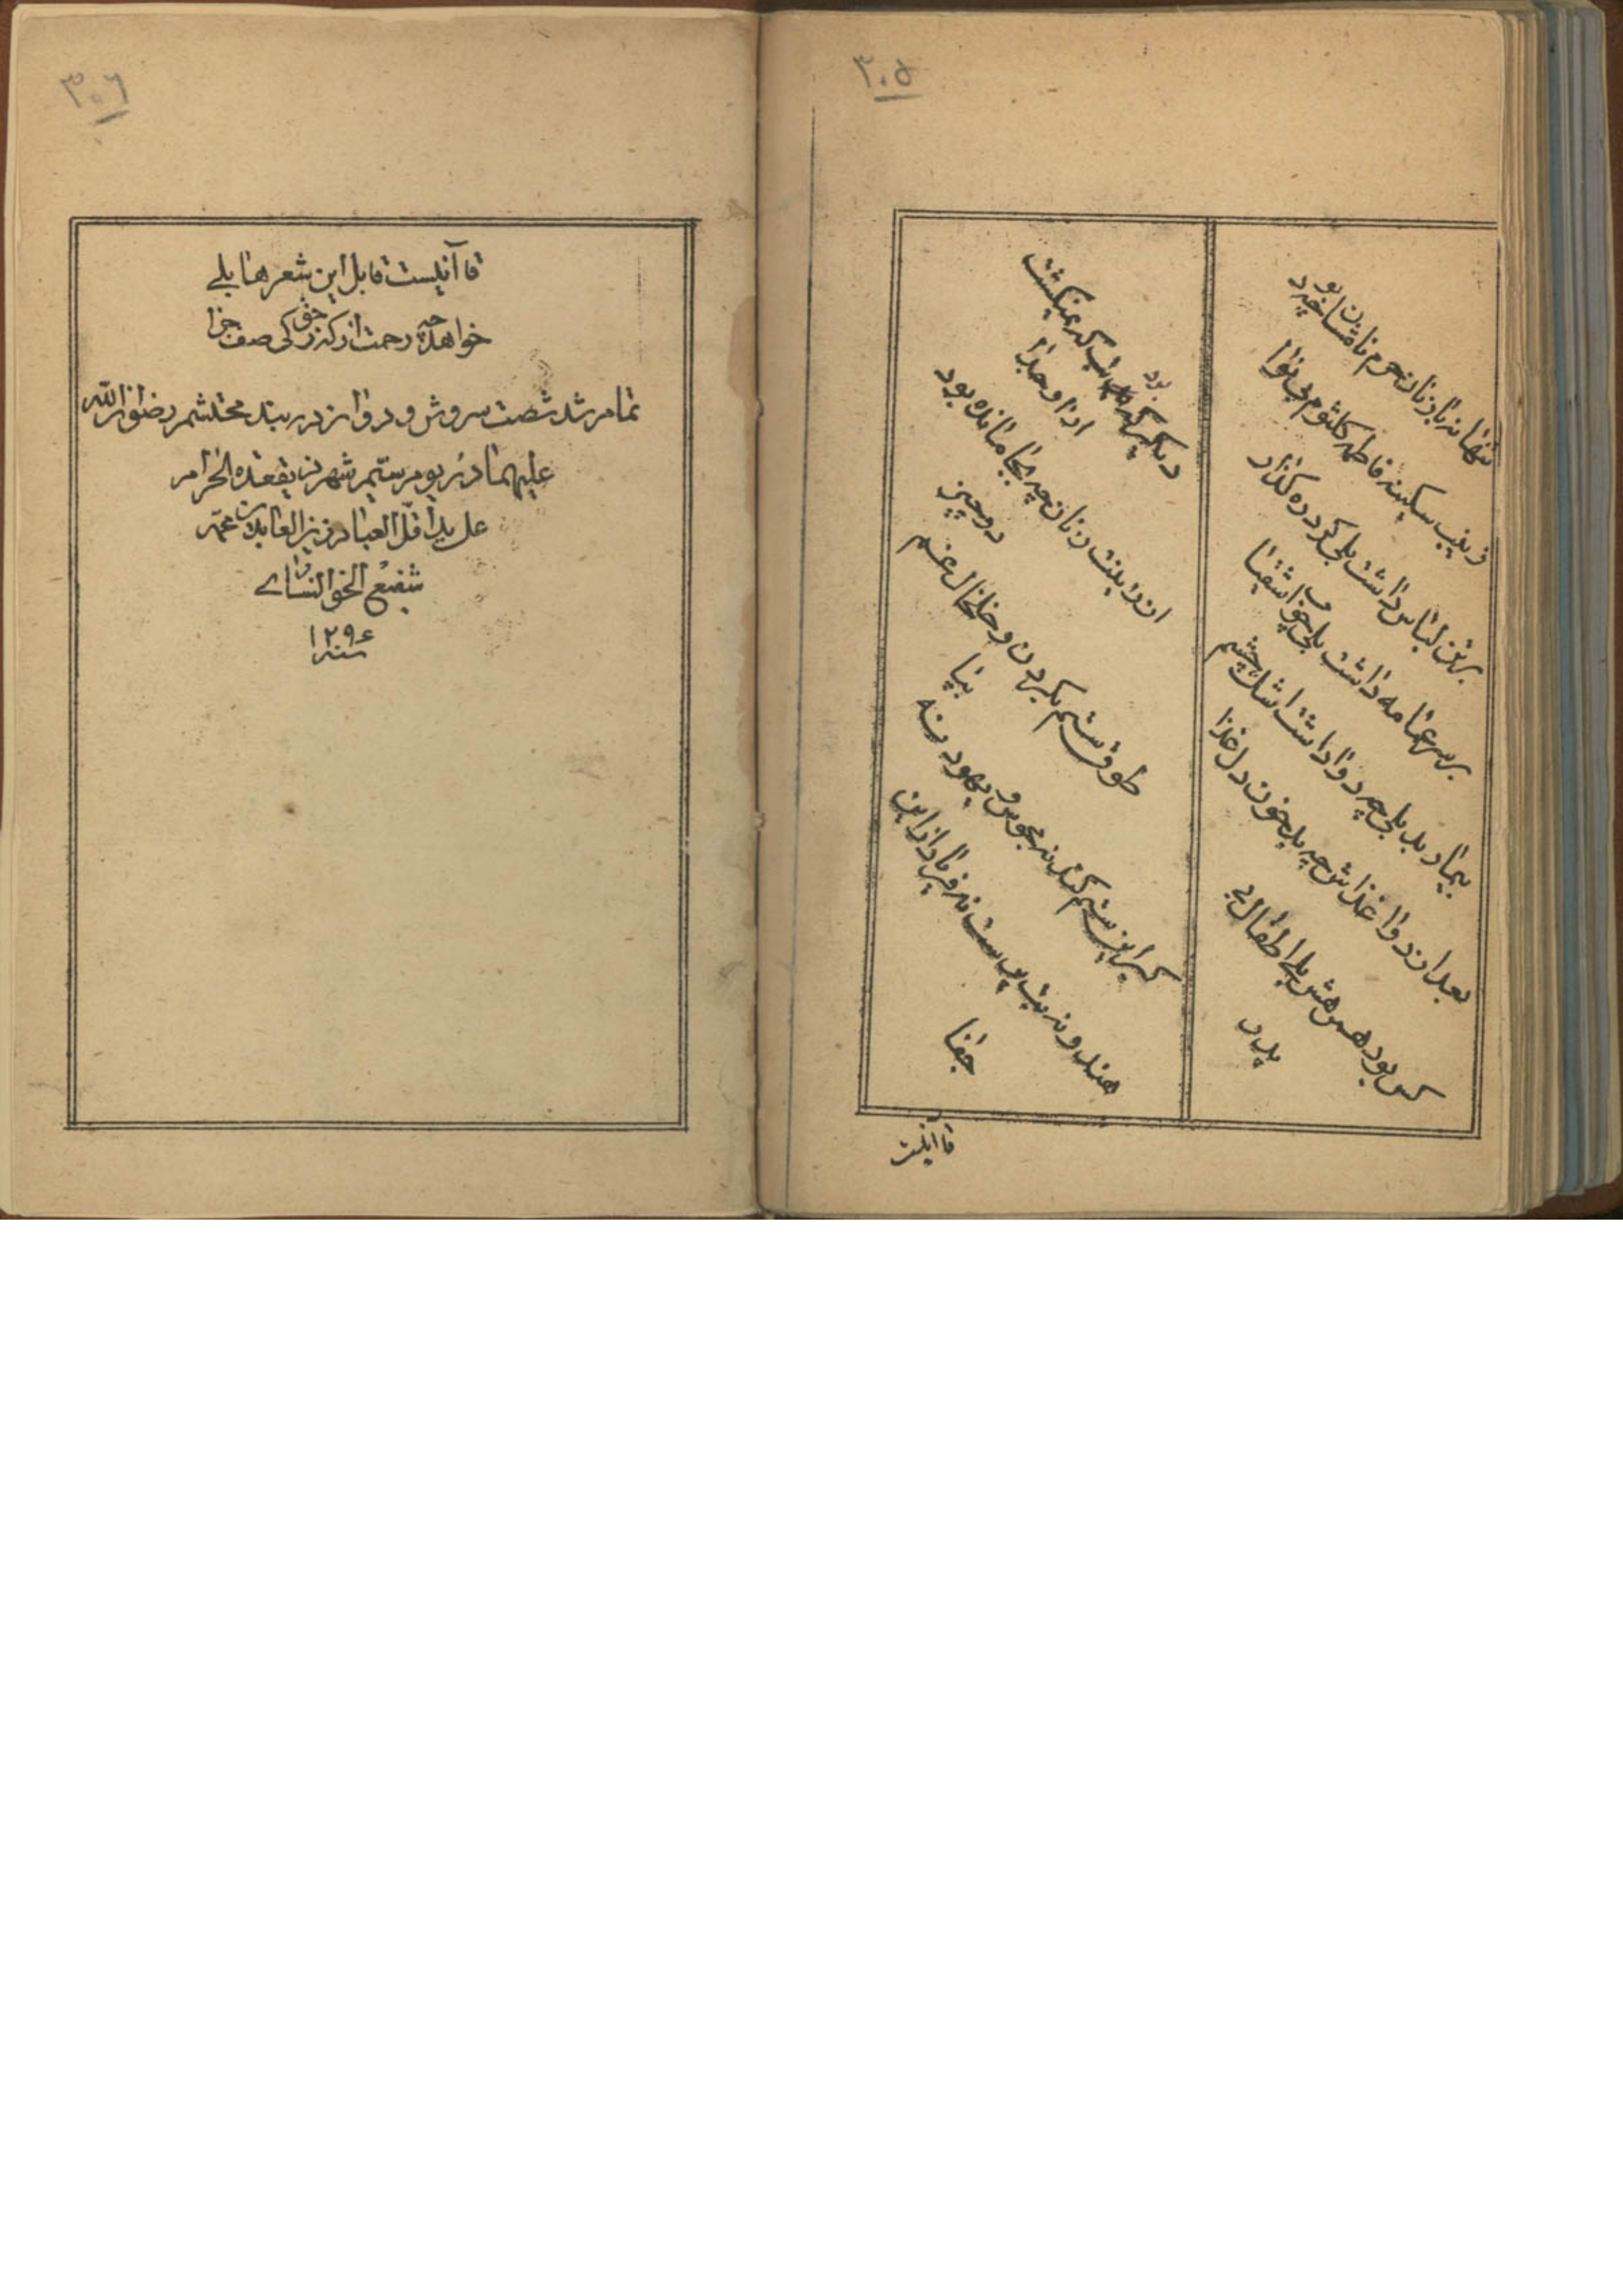 ۳۰۵
تنها نه با زنان حرم نامشان چه بود
زینب سکینه فاطمه کلثوم بی نوا
بر تن لباس داشت بلی گرد ره گذار
بر سر عمامه داشت بلی چوب اشقیا
بیمار بد بلی چه دوا داشت اشک چشم
بعد از دوا غذاش چه بد خون دل غذا
کس بود همرهش بلی اطفال بی
پدر
دیگر که بود تب که نمیگشت
ازو جدا
از زینت زنان چه بجا مانده بود
دو چیز
طوق ستم بگردن و خلخال غم
بپا
گبر این ستم کند نه مجوس و یهود نه
هندو نه بت پرست نه فریاد از این
جفا
قاآنیست
۳۰۶
قاآنیست قایل این شعرها بلی
خواهد چه رحمت از که ز حق کی صف جزا
تمام شد شصت سروش و دوازده بند محتشم رضوان الله
علیهما در یوم ستیم شهر ذیقعده الحرام
علی ید اقل العباد زین العابدین عمه
شفیع الخوانساری
سنه ۱۲۹۶